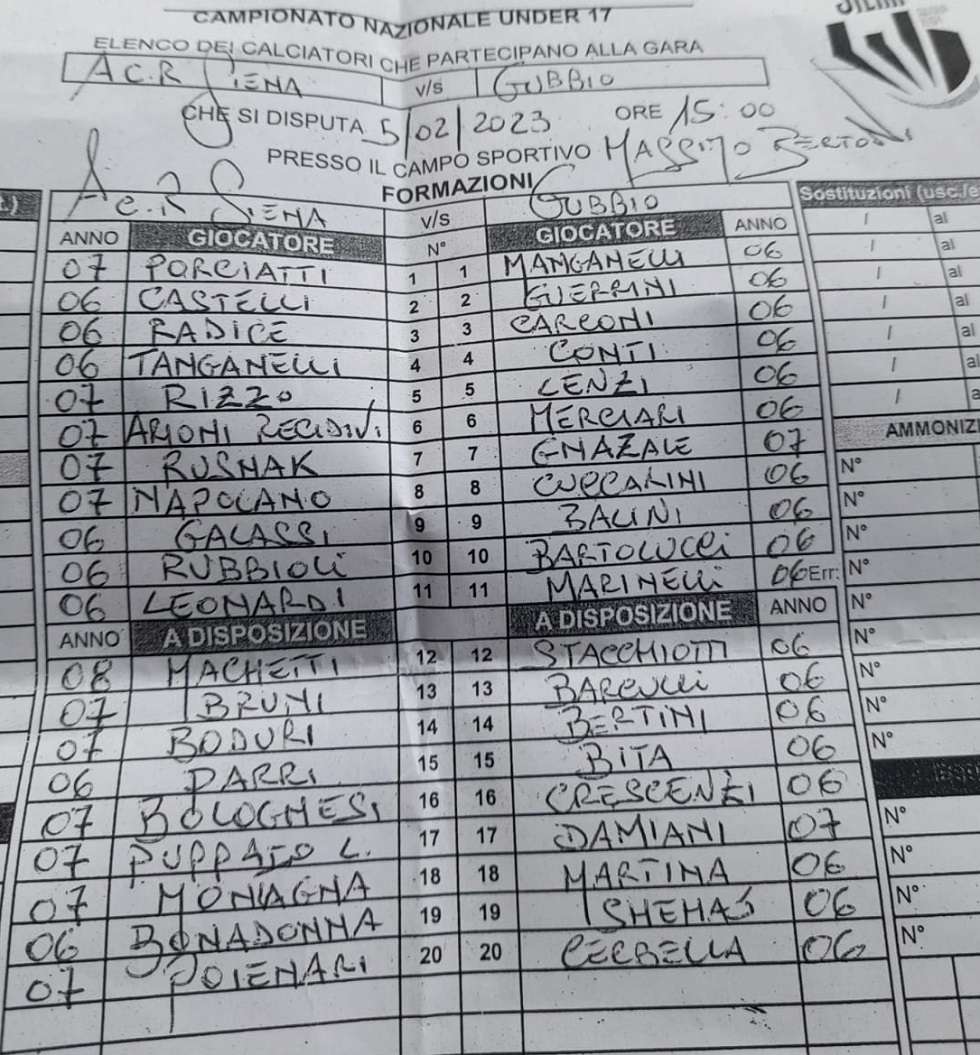 CAMPIONATO NAZIONALE UNDER 17
ELENCO DEI CALCIATORI CHE PARTECIPANO ALLA GARA
A C.R SIENA v/s GUBBIO
CHE SI DISPUTA 5/02/2023 ORE 15:00
PRESSO IL CAMPO SPORTIVO MASSIMO BERTONI
FORMAZIONI
A c.R SIENA v/s GUBBIO Sostituzioni (usc./e
ANNO GIOCATORE N° GIOCATORE ANNO / al
07 PORCIATTI 1 1 MANGANELLI 06 / al
06 CASTELLI 2 2 GUERRINI 06 / al
06 RADICE 3 3 CARCONI 06 / al
06 TANGANELLI 4 4 CONTI 06 / al
07 RIZZO 5 5 LENZI 06 / a
07 ARIONI RECIDIVI 6 6 MERCIARI 06 AMMONIZI
07 RUSNAK 7 7 GNAZALE 07 N°
07 NAPOLANO 8 8 CUCCARINI 06 N°
06 GALASSI 9 9 BALINI 06 N°
06 RUBBIOLI 10 10 BARTOLUCCI 06 N°
06 LEONARDI 11 11 MARINELLI 06 Err: N°
ANNO A DISPOSIZIONE A DISPOSIZIONE ANNO N°
08 MACHETTI 12 12 STACCHIOTTI 06 N°
07 BRUNI 13 13 BARCULLI 06 N°
07 BODURI 14 14 BERTINI 06 N°
06 PARRI 15 15 BITA 06 N°
07 BOLOGNESI 16 16 CRESCENZI 06
07 PUPPATO L. 17 17 DAMIANI 07 N°
07 MONTAGNA 18 18 MARTINA 06 N°
06 BONADONNA 19 19 SHEHAS 06 N°
07 POIENARI 20 20 CECBELLA 06 N°